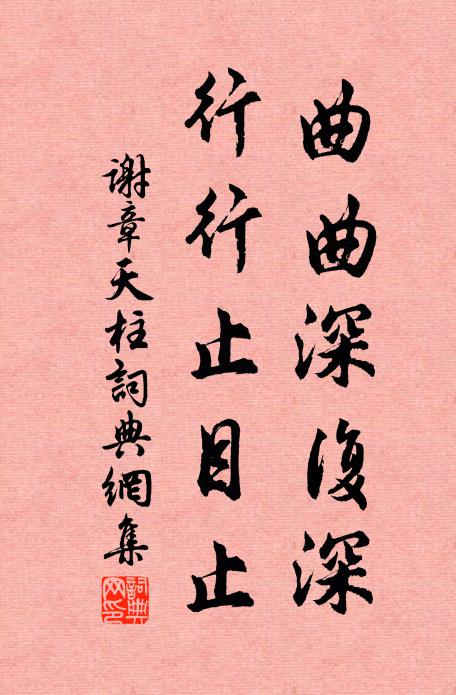 曲曲深復深
行行止目止
謝章天柱詞典網集
詞典網印